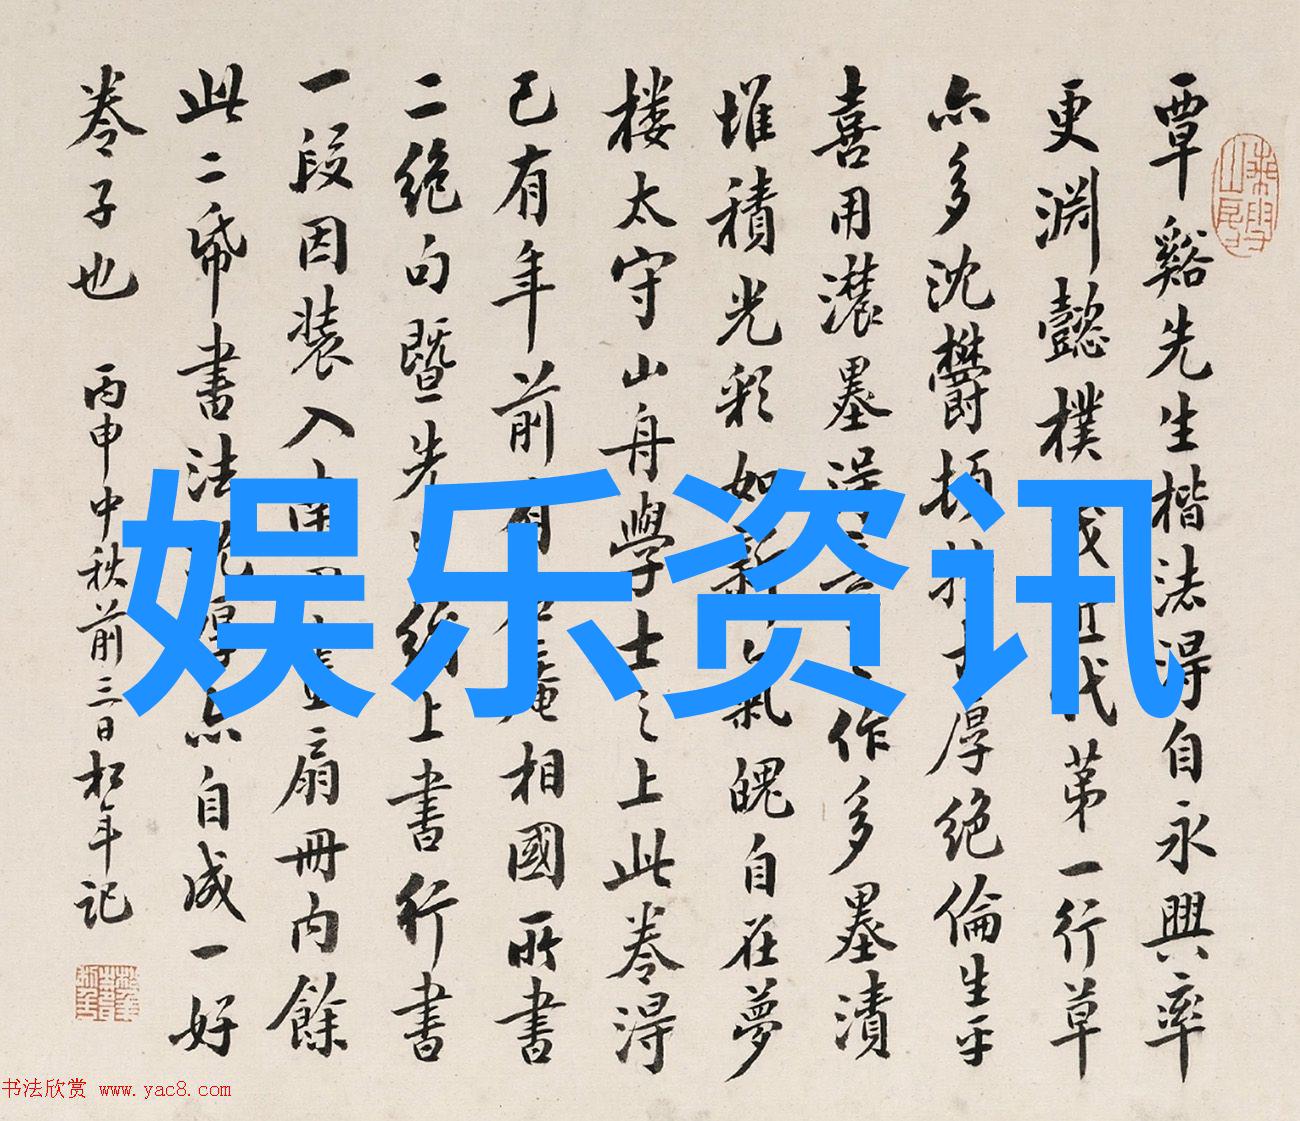 覃谿先生楷法得自永興率
更淵懿樸茂近代第一行草
亦多沈欝頓挫于厚絶倫生平
喜用濃墨渴筆之作多墨漬
堆積光彩如新氣魄自在夢
楼太守山舟學士之上此卷淂
已有年前有石庵相國所書
二絶句暨先生絶上書行書
一段因装入扇冊内餘
此二帋書法渾厚亦自成一好
卷子也
丙申中秋前三日松年記
娱乐资讯
书法欣赏 www.yac8.com